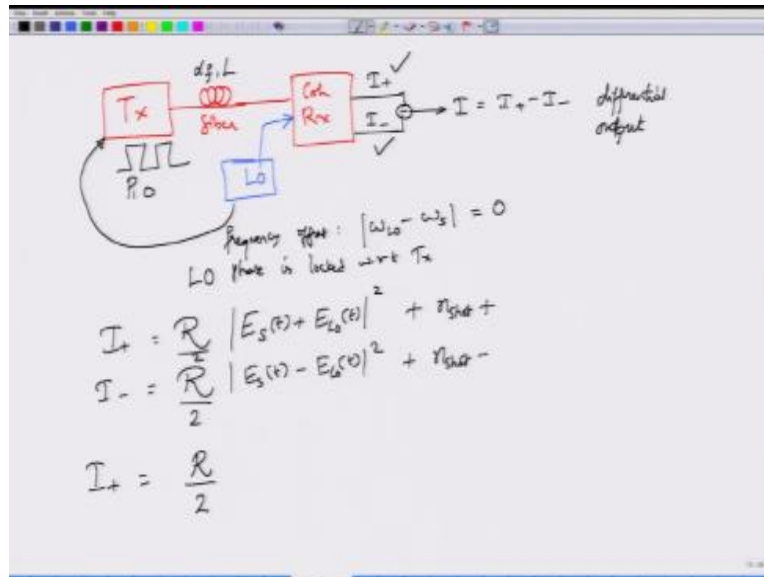 αf, L
Tx
fiber
Coh
Rx
I+ ✓
I- ✓
I = I+ - I-
differential
output
P, 0
LO
frequency offset : |ω_LO - ω_s| = 0
LO phase is locked w.r.t Tx
I+ = R/2 |E_s(t) + E_LO(t)|² + n_shot +
I- = R/2 |E_s(t) - E_LO(t)|² + n_shot -
I+ = R/2